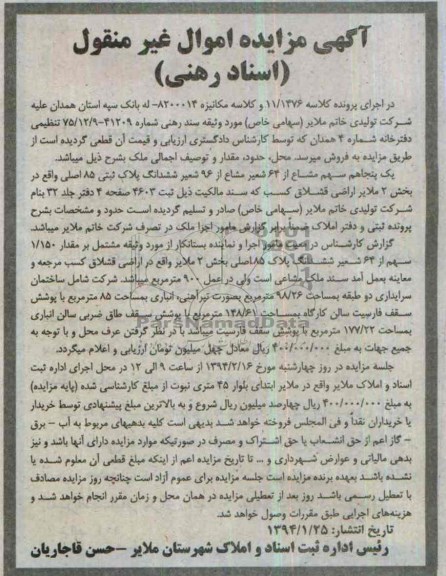 آگهی مزایده اموال غیر منقول
(اسناد رهنی)
در اجرای پرونده کلاسه ۱۱/۱۳۷۶ و کلاسه مکانیزه ۸۲۰۰۰۱۴- له بانک سپه استان همدان علیه
شرکت تولیدی خاتم ملایر (سهامی خاص) مورد وثیقه سند رهنی شماره ۴۱۲۰۹-۷۵/۱۲/۹ تنظیمی
دفترخانه شماره ۴ همدان که توسط کارشناس دادگستری ارزیابی و قیمت آن قطعی گردیده است از
طریق مزایده به فروش میرسد. محل، حدود، مقدار و توصیف اجمالی ملک بشرح ذیل میباشد.
یک پنجاهم سهم مشاع از ۶۴ شعیر مشاع از ۹۶ شعیر ششدانگ پلاک ثبتی ۸۵ اصلی واقع در
بخش ۲ ملایر اراضی قشلاق کسب که سند مالکیت ذیل ثبت ۴۶۰۳ صفحه ۴ دفتر جلد ۳۲ بنام
شرکت تولیدی خاتم ملایر (سهامی خاص) صادر و تسلیم گردیده است حدود و مشخصات بشرح
پرونده ثبتی و دفتر املاک ضمنا برابر گزارش مامور اجرا ملک در تصرف شرکت خاتم ملایر میباشد.
گزارش کارشناس در معیت مامور اجرا و نماینده بستانکار از مورد وثیقه مشتمل بر مقدار ۱/۱۵۰
سهم از ۶۴ شعیر ششدانگ پلاک ۸۵ اصلی بخش ۲ ملایر واقع در اراضی قشلاق کسب مرجعه و
معاینه بعمل آمد سند ملک مشاعی است ولی در عمل ۹۰۰ مترمربع میباشد. شرکت شامل ساختمان
سرایداری دو طبقه بمساحت ۹۸/۲۶ مترمربع بصورت تیرآهنی، انباری بمساحت ۸۵ مترمربع با پوشش
سقف فارسیت سالن کارگاه بمساحت ۱۴۸/۶۱ مترمربع با پوشش سقف طاق ضربی سالن انباری
بمساحت ۱۷۷/۲۲ مترمربع با پوشش سقف فارسیت میباشد با در نظر گرفتن عرف محل و با توجه به
جمیع جهات به مبلغ ۴۰۰/۰۰۰/۰۰۰ ریال معادل چهل میلیون تومان ارزیابی و اعلام میگردد.
جلسه مزایده در روز چهارشنبه مورخ ۱۳۹۴/۲/۱۶ از ساعت ۹ الی ۱۲ در محل اجرای اداره ثبت
اسناد و املاک ملایر واقع در ملایر ابتدای بلوار ۴۵ متری نبوت از مبلغ کارشناسی شده (پایه مزایده)
به مبلغ ۴۰۰/۰۰۰/۰۰۰ ریال چهارصد میلیون ریال شروع و به بالاترین مبلغ پیشنهادی توسط خریدار
یا خریداران نقداً و فی المجلس فروخته خواهد شد بدیهی است کلیه بدهیهای مربوط به آب - برق
- گاز اعم از حق انشعاب یا حق اشتراک و مصرف در صورتیکه موارد مزایده دارای آنها باشد و نیز
بدهی مالیاتی و عوارض شهرداری و ... تا تاریخ مزایده اعم از اینکه مبلغ قطعی آن معلوم شده یا
نشده باشد بعهده برنده مزایده است جلسه مزایده برای عموم آزاد است چنانچه روز مزایده مصادف
با تعطیل رسمی باشد روز بعد از تعطیلی مزایده در همان محل و زمان مقرر انجام خواهد شد و
هزینه‌های اجرایی طبق مقررات وصول خواهد شد.
تاریخ انتشار: ۱۳۹۴/۱/۲۵
رئیس اداره ثبت اسناد و املاک شهرستان ملایر - حسن قاجاریان